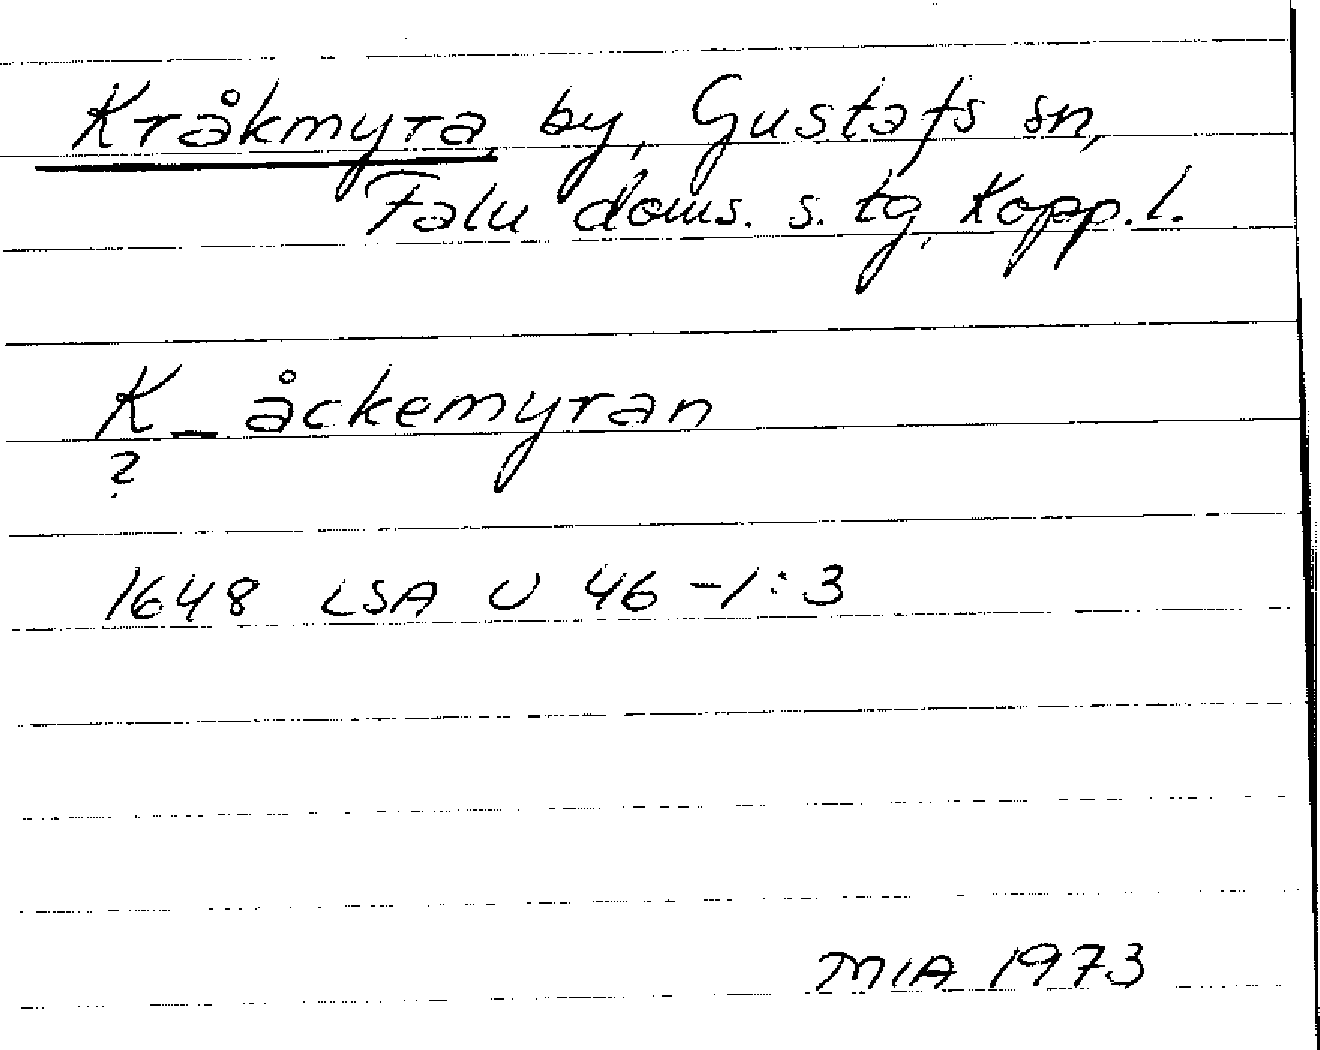 Kråkmyra, by, Gustafs sn,
Falu doms. s. tg, Kopp. l.
K_åckemyran
?
1648 LSA U 46-1:3
MIA 1973